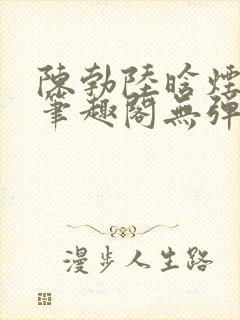 陳勃陸晗煙
筆趣閣無彈
漫步人生路